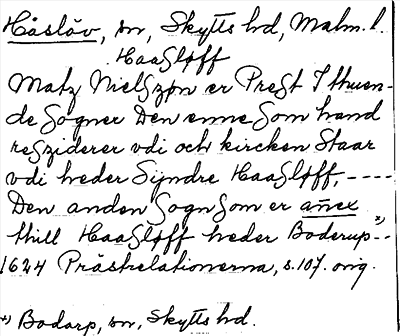 Håslöv, sn, Skytts hd, Malm. l.
HaaSløff
Matz NielSzøn er PreSt I thuen-
de Sogner Den enne Som hand
reSziderer vdi och kircken Staar
vdi heder Syndre HaaSløff, ----
Den anden Sogn Som er añex
thill HaaSløff heder Boderup x)--
1624 Prästrelationerna, s. 107. orig.
x) Bodarp, sn, Skytts hd.